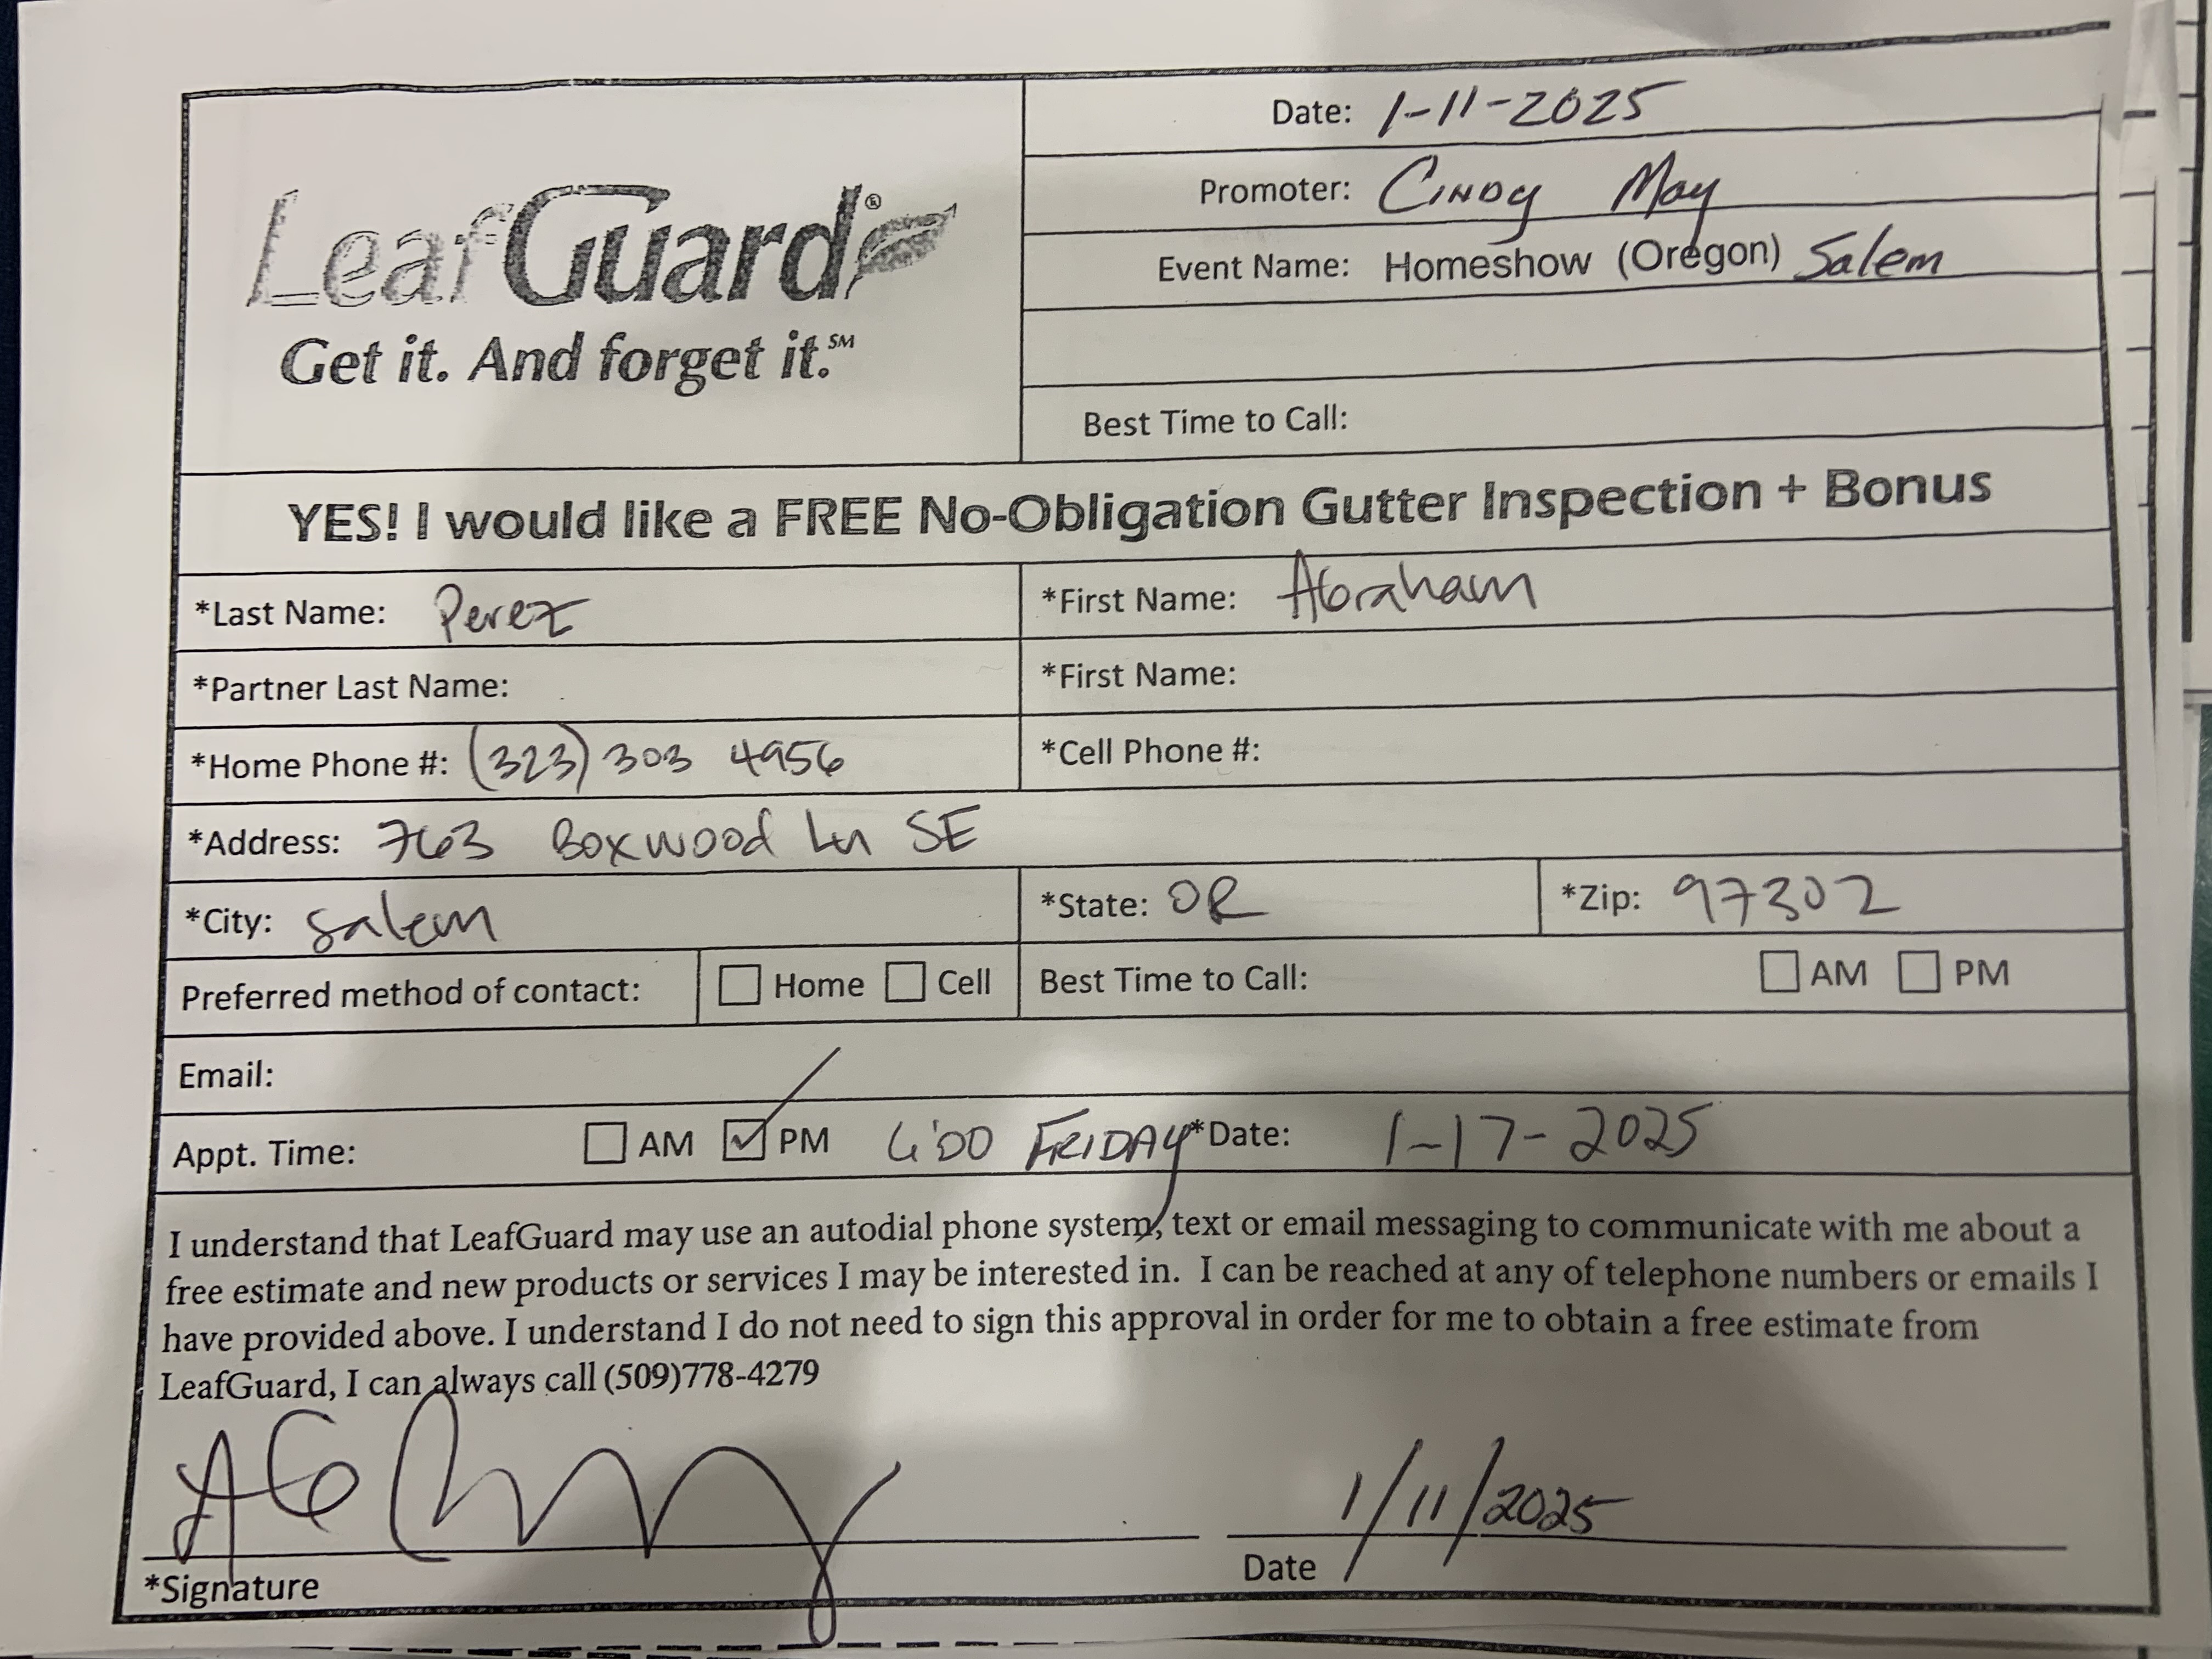 LeafGuard®
Get it. And forget it.℠
Date: 1-11-2025
Promoter: Cindy May
Event Name: Homeshow (Oregon) Salem
Best Time to Call:
YES! I would like a FREE No-Obligation Gutter Inspection + Bonus
*Last Name: Perez *First Name: Abraham
*Partner Last Name: *First Name:
*Home Phone #: (323) 303 4956 *Cell Phone #:
*Address: 763 Boxwood Ln SE
*City: Salem *State: OR *Zip: 97302
Preferred method of contact: ☐ Home ☐ Cell Best Time to Call: ☐ AM ☐ PM
Email:
Appt. Time: ☐ AM ☑ PM 6:00 FRIDAY *Date: 1-17-2025
I understand that LeafGuard may use an autodial phone system, text or email messaging to communicate with me about a
free estimate and new products or services I may be interested in. I can be reached at any of telephone numbers or emails I
have provided above. I understand I do not need to sign this approval in order for me to obtain a free estimate from
LeafGuard, I can always call (509)778-4279
1/11/2025
*Signature Date